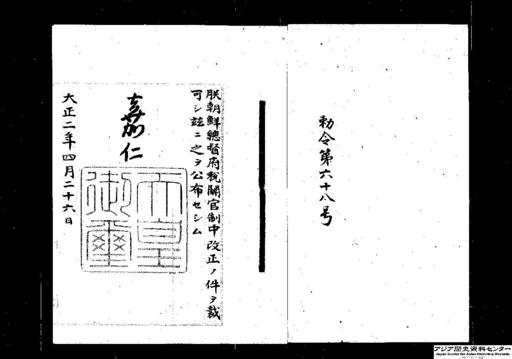 勅令第六十八号
朕朝鮮總督府税關官制中改正ノ件ヲ裁
可シ茲ニ之ヲ公布セシム
嘉仁
天皇
御璽
大正二年四月二十六日
アジア歴史資料センター
Japan Center for Asian Historical Records